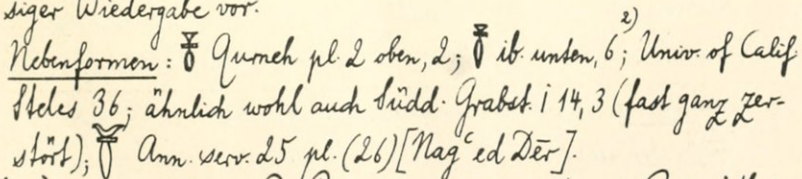 siger Wiedergabe vor.
Nebenformen: Qurneh pl. 2 oben, 2; ib. unten, 6 ²⁾; Univ. of Calif.
Steles 36; ähnlich wohl auch Südd. Grabst. I 14, 3 (fast ganz zer-
stört); Ann. serv. 25 pl. (26) [Nagʿ ed Dēr].